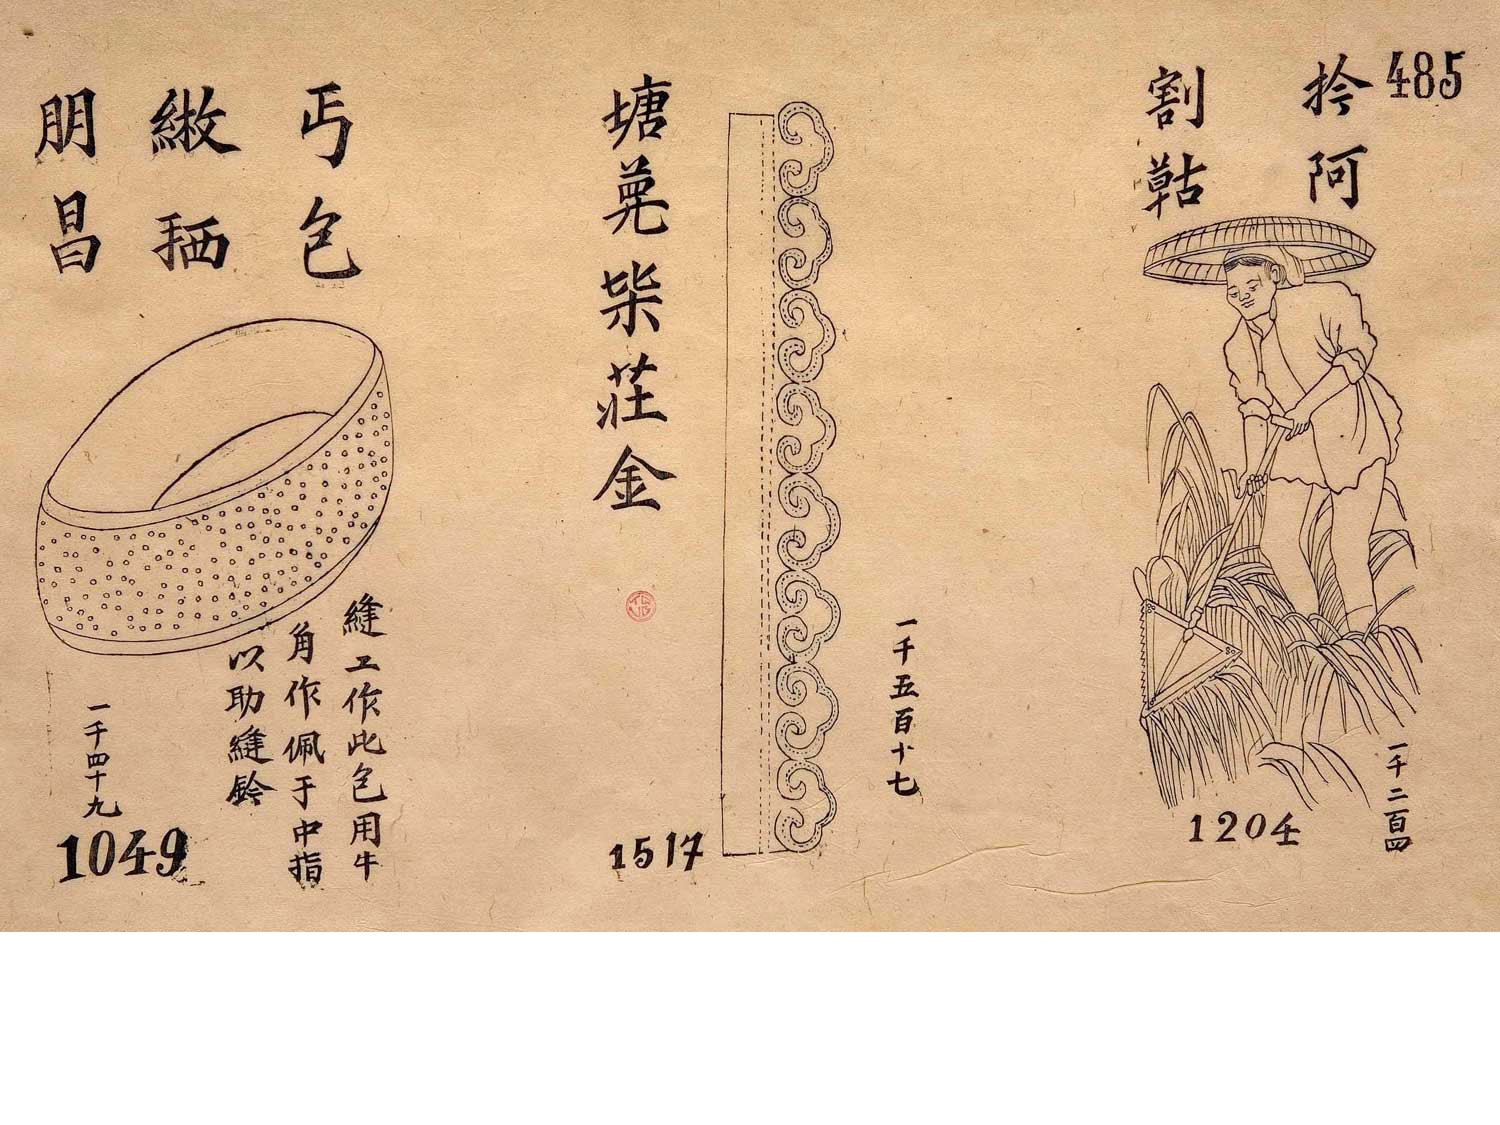 485
拎阿
割䔖
一千二百四
1204
塘
柴莊金
一千五百十七
1517
丐包
緻粞
朋昌
縫工作此包用牛
角作佩于中指
以助縫鈴
一千四十九
1049